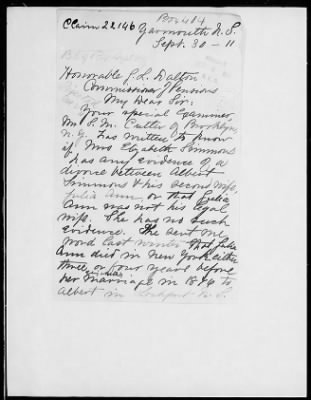 Box 404
C Claim 22,146 Yarmouth N.S.
Sept. 30 - 11
Honorable G.L. Dalton
Commissioner of Pensions
My Dear Sir:
Your special Examiner
Mr S.M. Cutler of Brooklyn
N.Y. has written to know
if Mrs Elizabeth Simmons
has any evidence of a
divorce between Albert
Simmons & his second wife,
Julia Ann, or that Julia
Ann was not his legal
wife. She has no such
evidence. She sent me
word last winter that Julia
Ann died in New York either
three, or four years before
her marriage in 1876 to
Albert in Lockport N.S.